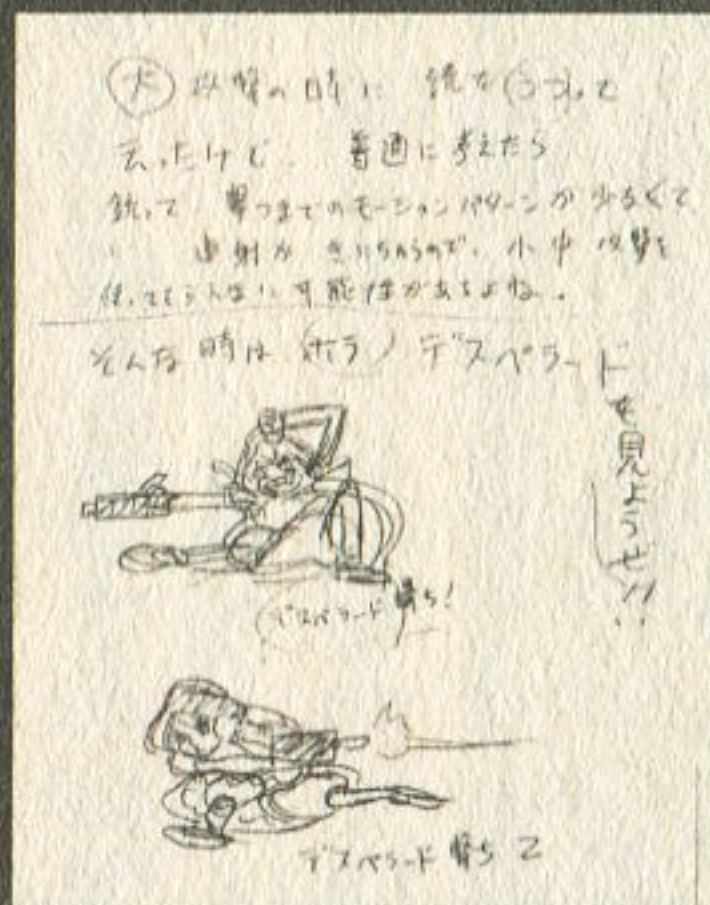 大 攻撃の時に 銃を(うつ)って
云ったけど、普通に考えたら
銃って 撃つまでのモーションパターンが少なくて
連射が 小中 攻撃
可能性があるよね。
そんな時は (ホラ) デスペラードを見ようぜ!!
デスペラード撃ち!
デスペラード撃ち2